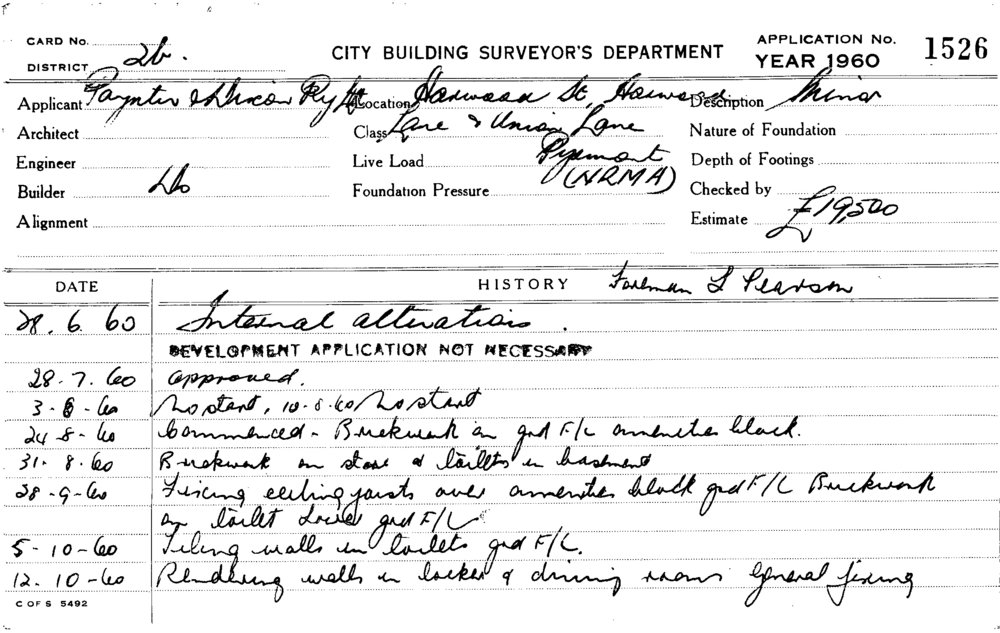 CARD No.
DISTRICT 2b.
CITY BUILDING SURVEYOR'S DEPARTMENT
APPLICATION No. 1526
YEAR 1960
Applicant Paynter & Dixon Pty Ltd Location Harwood St, Harwood Description Minor
Architect Class Lane & Union Lane Nature of Foundation
Engineer Live Load Pyrmont Depth of Footings
Builder Do Foundation Pressure (NRMA) Checked by
Alignment Estimate £19,500
DATE HISTORY Foreman L Pearson
28. 6. 60 Internal alterations.
DEVELOPMENT APPLICATION NOT NECESSARY
28. 7. 60 approved.
3 - 8 - 60 No start, 10-8-60 No start
24 - 8 - 60 Commenced - Brickwork on grd F/L amenities block.
31. 8. 60 Brickwork on store & toilets in basment
28 - 9 - 60 Fixing ceiling joists over amenities block grd F/L Brickwork
on toilet Lower grd F/L
5 - 10 - 60 Tiling walls in toilets grd F/L.
12. 10 - 60 Rendering walls in locker & dining rooms General fixing
C OF S 5492